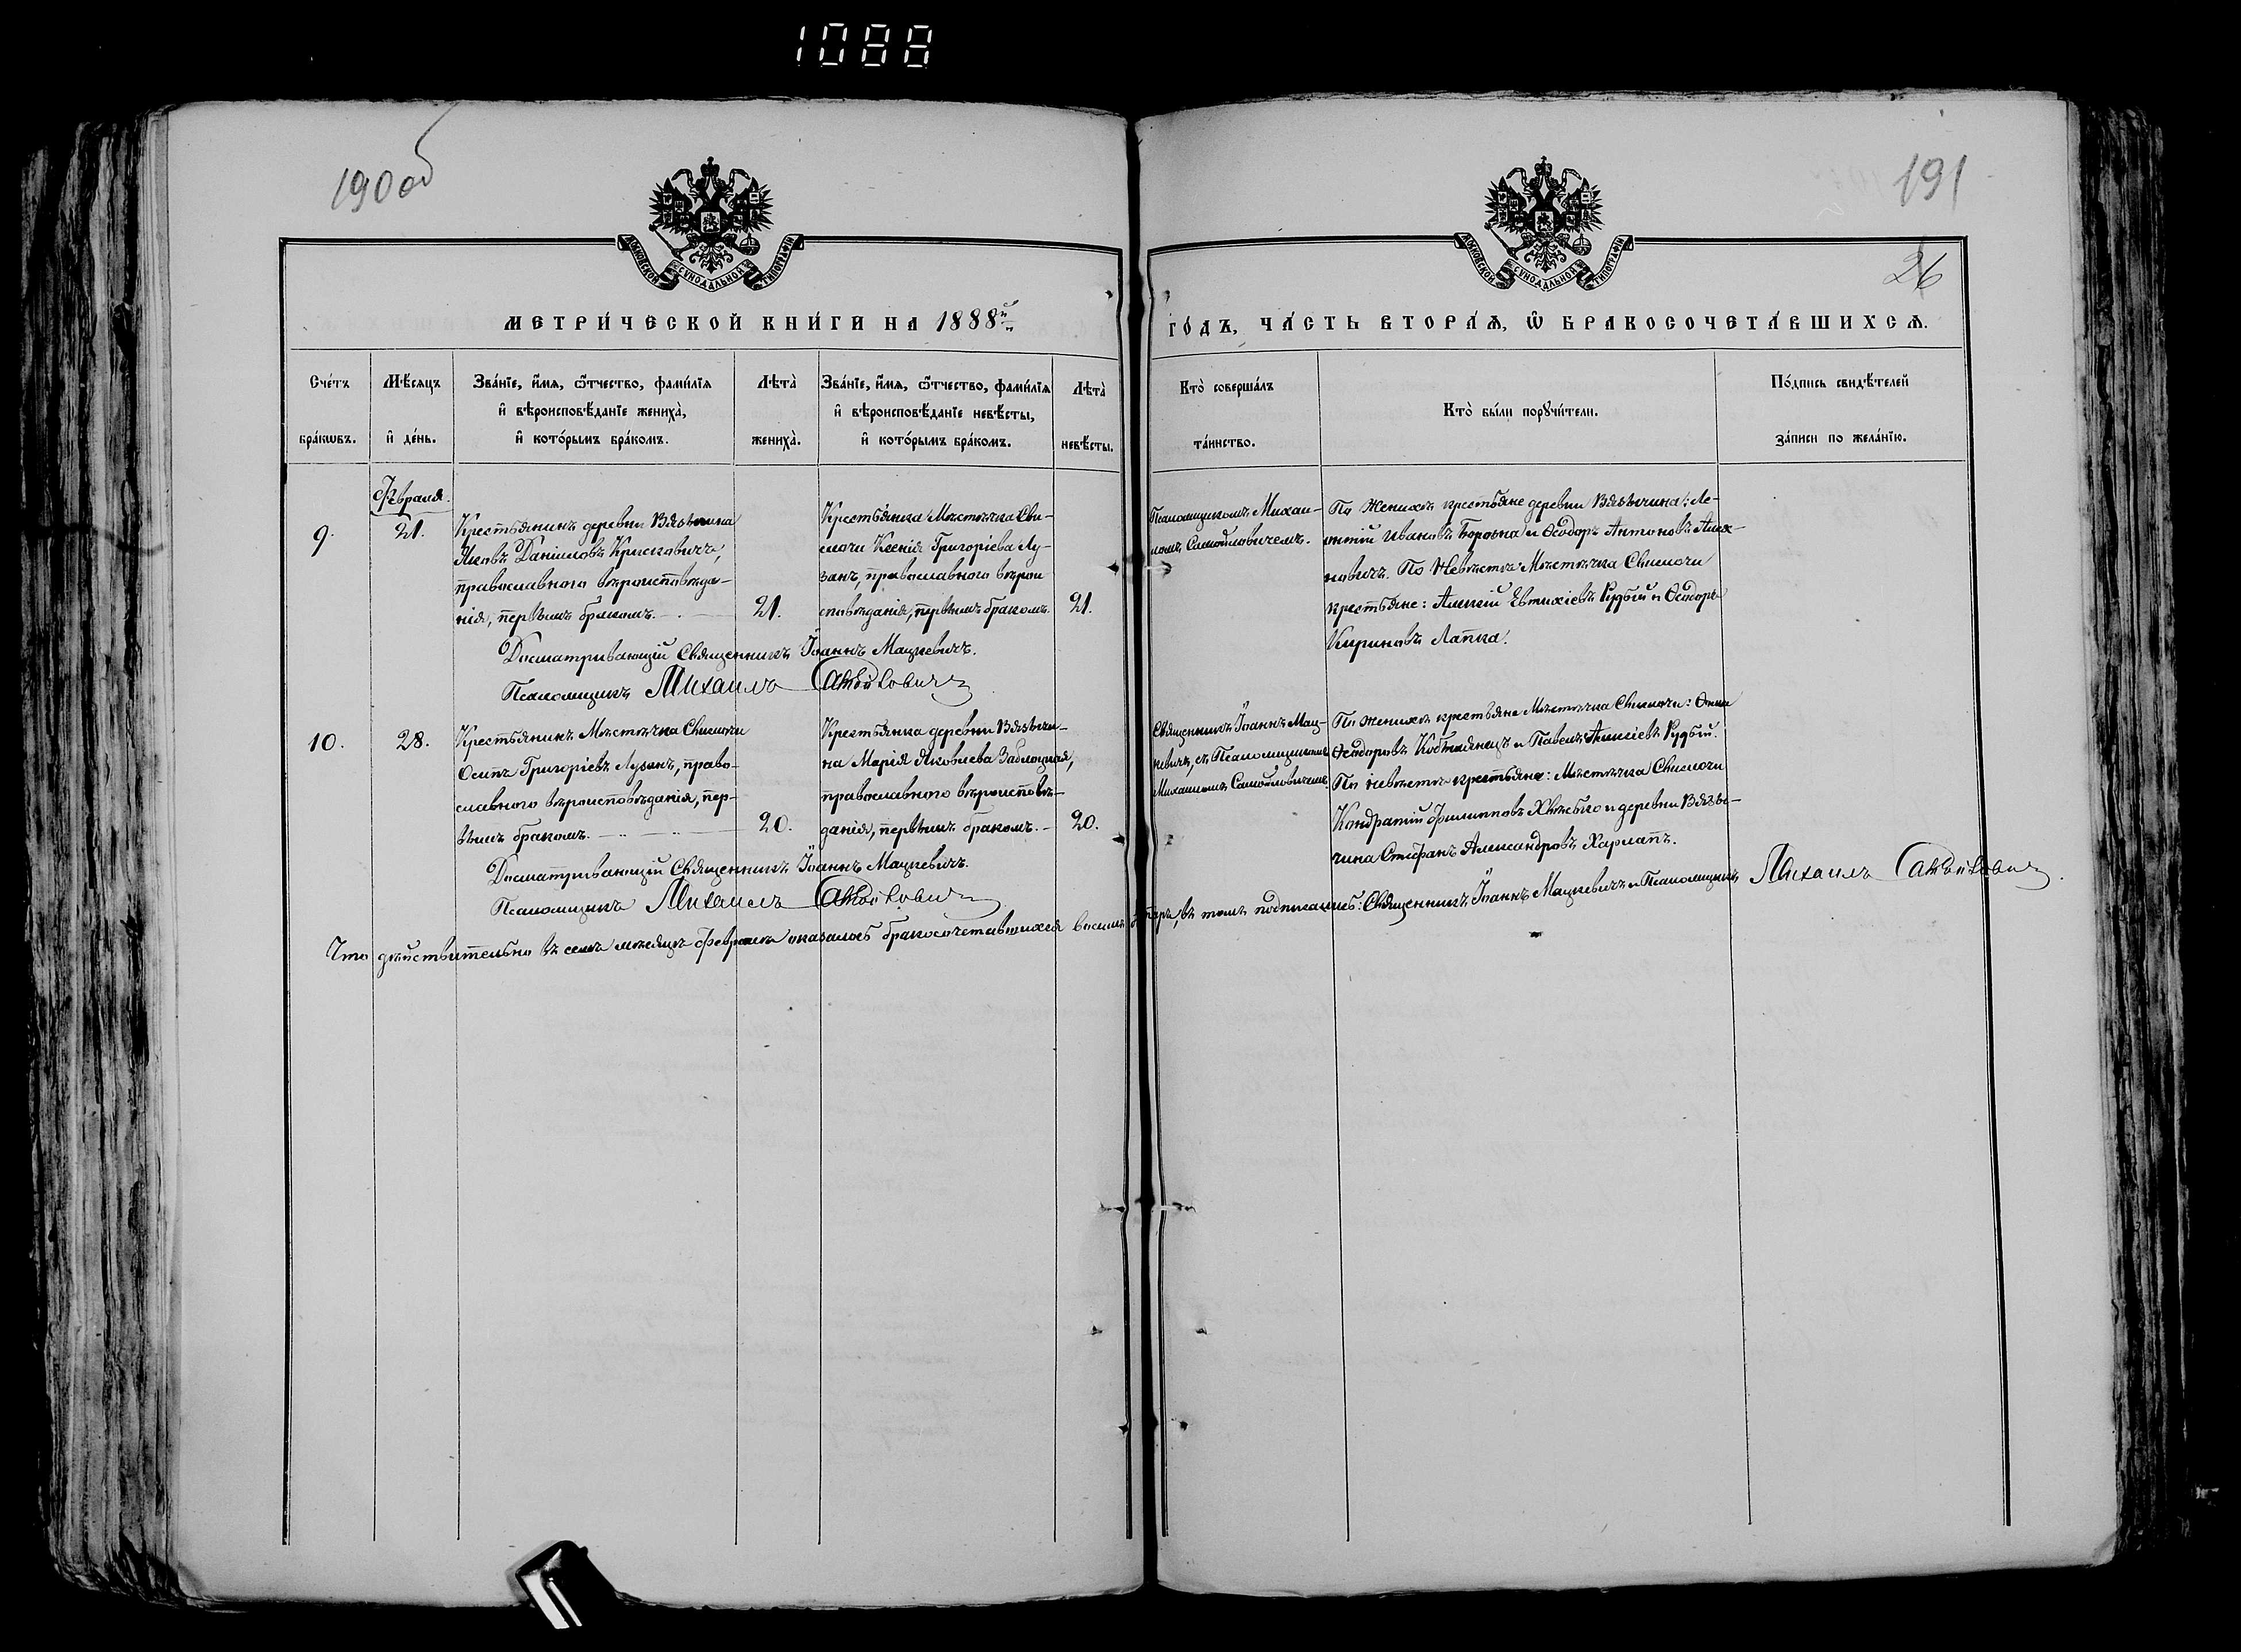 1088
190 об
191
26
МОСКОВСКОЙ СѴНОДАЛЬНОЙ ТИПОГРАФІИ
МОСКОВСКОЙ СѴНОДАЛЬНОЙ ТИПОГРАФІИ
МЕТРИ́ЧЕСКОЙ КНИ́ГИ НА 1888й
ГО́ДЪ, ЧА́СТЬ ВТОРА́Ѧ, Ѡ БРАКОСОЧЕТА́ВШИХСѦ.
Сче́тъ
бра́кѡвъ.
Мѣ́сяцъ
и де́нь.
Зва́нїе, и́мѧ, ѻ́тчество, фами́лїѧ
и вѣроисповѣ́данїе жениха̀,
и кото́рымъ бра́комъ.
Лѣта̀
жениха̀.
Зва́нїе, и́мѧ, ѻ́тчество, фами́лїѧ
и вѣроисповѣ́данїе невѣ́сты,
и кото́рымъ бра́комъ.
Лѣта̀
невѣ́сты.
Кто̀ соверша́лъ
та́инство.
Кто̀ бы́ли порꙋчи́тели.
По́дпись свидѣ́телей
за́писи по жела́нїю.
Февраля.
9.
21.
Крестьянинъ деревни Вязычина
Яковъ Даніиловъ Крисковичъ,
православнаго вѣроисповѣда-
нія, первымъ бракомъ.
21.
Крестьянка Мѣстечка Сви-
слочи Ксенія Григоріева Лу-
занъ, православнаго вѣрои
сповѣданія, первымъ бракомъ.
21.
Псаломщикомъ Михаи-
ломъ Самойловичемъ.
По Женихѣ крестьяне деревни Вязычина: Ле-
онтій Ивановъ и Ѳеодоръ Антоновъ
По Невѣстѣ: Мѣстечка Свислочи
крестьяне: Алексій Евтихіевъ Рудый и Ѳеодоръ
Кириловъ Лапка.
Досматривающій Священникъ Іоаннъ Мацкевичъ.
Псаломщикъ Михаилъ Самойловичъ
10.
28.
Крестьянинъ Мѣстечка Свислочи
Осипъ Григоріевъ Лузанъ, право-
славнаго вѣроисповѣданія, пер-
вымъ бракомъ.
20.
Крестьянка деревни Вязычи-
на Марія Яковлева Заблоцкая,
православнаго вѣроисповѣ-
данія, первымъ бракомъ.
20.
Священникъ Іоаннъ Мац-
кевичъ, съ Псаломщикомъ
Михаиломъ Самойловичемъ.
По женихѣ крестьяне Мѣстечка Свислочи: Ѳома
Ѳеодоровъ и Павелъ Алексіевъ Рудый.
По невѣстѣ крестьяне: Мѣстечка Свислочи
Кондратій Филипповъ и деревни Вязы-
чина Стефанъ Александровъ Харлапъ.
Досматривающій Священникъ Іоаннъ Мацкевичъ.
Псаломщикъ Михаилъ Самойловичъ
Что дѣйствительно въ семъ мѣсяцѣ Февралѣ оказалось бракосочетавшихся восемь паръ, въ томъ подписались: Священникъ Іоаннъ Мацкевичъ и Псаломщикъ Михаилъ Самойловичъ.